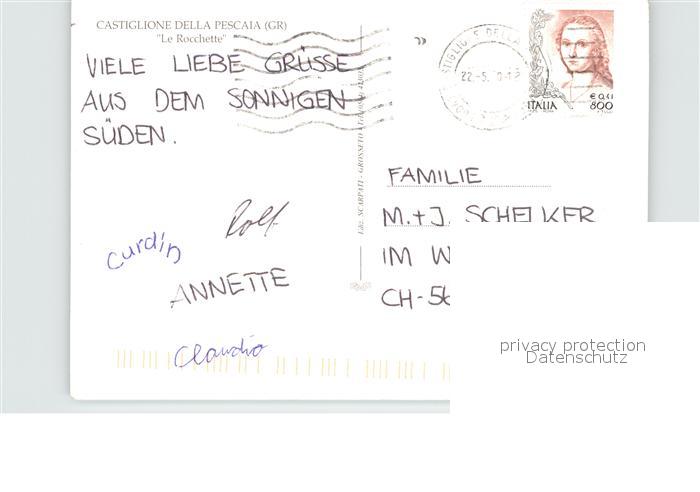 CASTIGLIONE DELLA PESCAIA (GR)
"Le Rocchette"
VIELE LIEBE GRÜSSE
AUS DEM SONNIGEN
SÜDEN.
Rolf
Curdin
ANNETTE
Claudio
Ediz. SCARPATI - GROSSETO
22-5
ITALIA
€ 0,41
800
FAMILIE
M.+J. SCHELKER
IM W
CH-56
privacy protection
Datenschutz